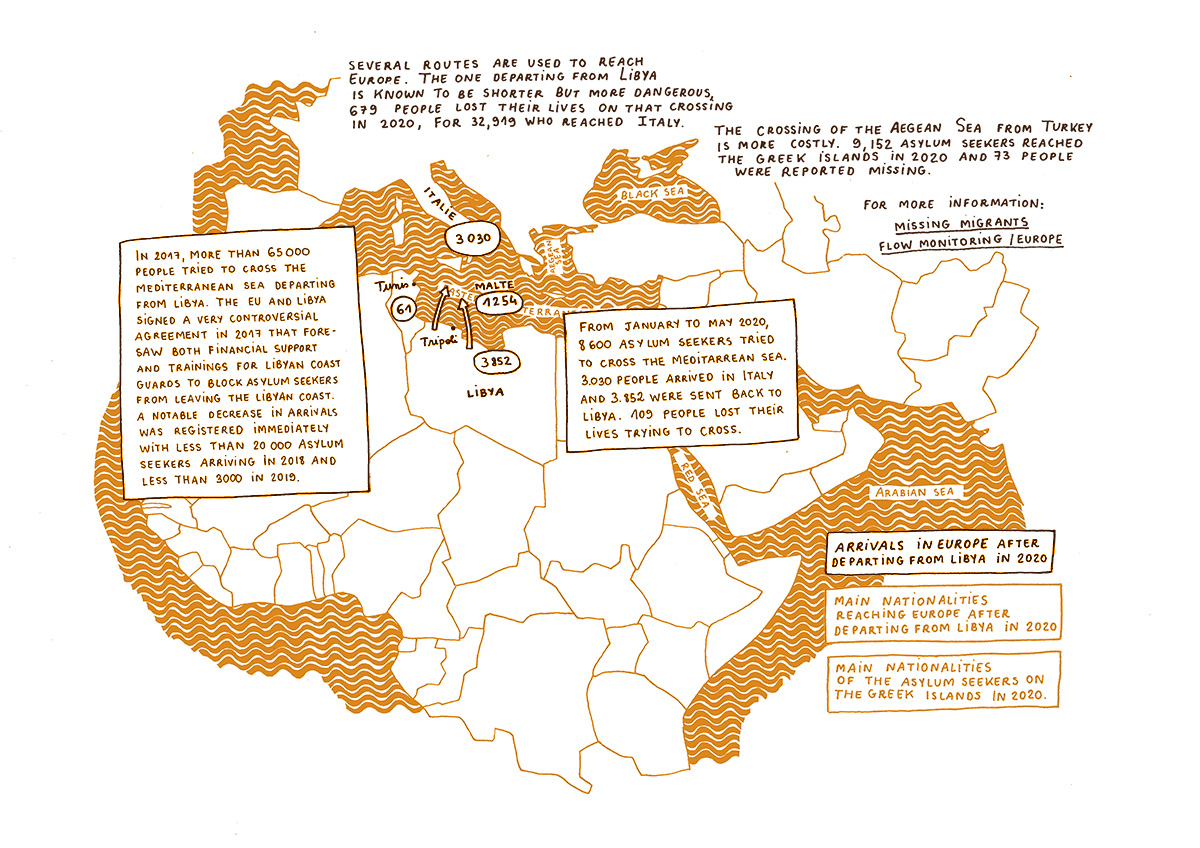 SEVERAL ROUTES ARE USED TO REACH
EUROPE. THE ONE DEPARTING FROM LIBYA
IS KNOWN TO BE SHORTER BUT MORE DANGEROUS,
679 PEOPLE LOST THEIR LIVES ON THAT CROSSING
IN 2020, FOR 32,919 WHO REACHED ITALY.
THE CROSSING OF THE AEGEAN SEA FROM TURKEY
IS MORE COSTLY. 9,152 ASYLUM SEEKERS REACHED
THE GREEK ISLANDS IN 2020 AND 73 PEOPLE
WERE REPORTED MISSING.
FOR MORE INFORMATION:
MISSING MIGRANTS
FLOW MONITORING / EUROPE
BLACK SEA
ITALIE
3 030
AEGEAN
SEA
IN 2017, MORE THAN 65 000
PEOPLE TRIED TO CROSS THE
MEDITERRANEAN SEA DEPARTING
FROM LIBYA. THE EU AND LIBYA
SIGNED A VERY CONTROVERSIAL
AGREEMENT IN 2017 THAT FORE-
SAW BOTH FINANCIAL SUPPORT
AND TRAININGS FOR LIBYAN COAST
GUARDS TO BLOCK ASYLUM SEEKERS
FROM LEAVING THE LIBYAN COAST.
A NOTABLE DECREASE IN ARRIVALS
WAS REGISTERED IMMEDIATELY
WITH LESS THAN 20 000 ASYLUM
SEEKERS ARRIVING IN 2018 AND
LESS THAN 3000 IN 2019.
Tunis
61
MALTE
1254
Tripoli
3 852
LIBYA
FROM JANUARY TO MAY 2020,
8 600 ASYLUM SEEKERS TRIED
TO CROSS THE MEDITARREAN SEA.
3.030 PEOPLE ARRIVED IN ITALY
AND 3.852 WERE SENT BACK TO
LIBYA. 109 PEOPLE LOST THEIR
LIVES TRYING TO CROSS.
RED SEA
ARABIAN SEA
ARRIVALS IN EUROPE AFTER
DEPARTING FROM LIBYA IN 2020
MAIN NATIONALITIES
REACHING EUROPE AFTER
DEPARTING FROM LIBYA IN 2020
MAIN NATIONALITIES
OF THE ASYLUM SEEKERS ON
THE GREEK ISLANDS IN 2020.